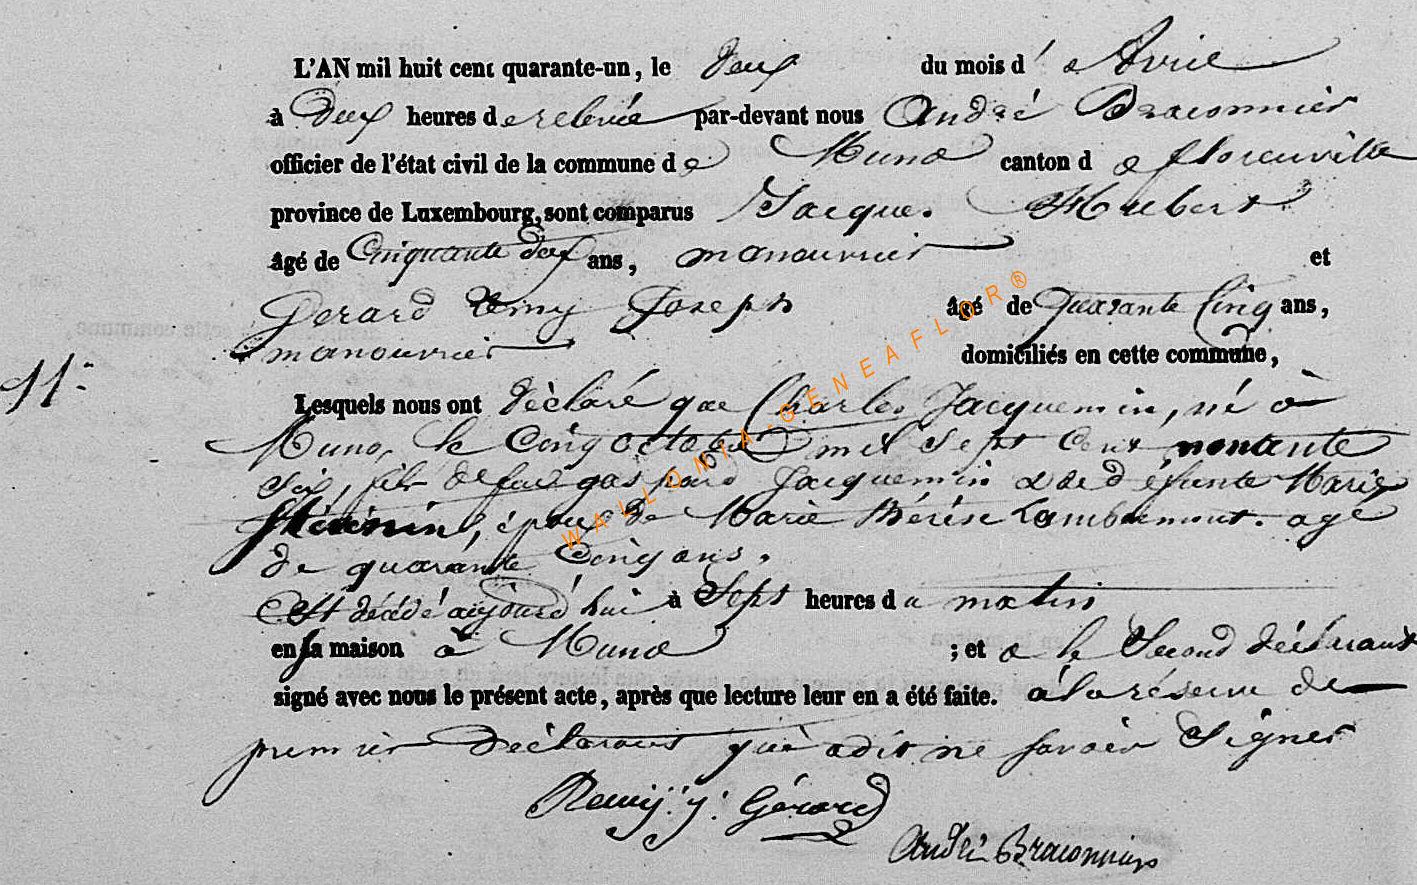 L'AN mil huit cent quarante-un, le deux du mois d' Avril
à deux heures de relevée par-devant nous André Braconnier
officier de l'état civil de la commune de Muno canton de florenville
province de Luxembourg, sont comparus Jacque. Hubert
âgé de Cinquante deux ans, manouvrier et
Gerard Remy Joseph âgé de quarante Cinq ans,
manouvrier domiciliés en cette commune,
11.
Lesquels nous ont déclaré que Charles Jacquemin, né à
Muno, le Cinq octobre mil sept Cent nonante
Six, fils de feu gaspard Jacquemin & de défunte Marie
époux de Marie Thérèse Lambermont. agé
de quarante Cinq ans.
Est décédé aujourd'hui à Sept heures du matin
en sa maison à Muno ; et a le Second déclarant
signé avec nous le présent acte, après que lecture leur en a été faite. à la réserve de
premier déclarant qui a dit ne savoir Signer
Remy. j. Gérard
André Braconnier
WALLONIA-GENEAFLOR®